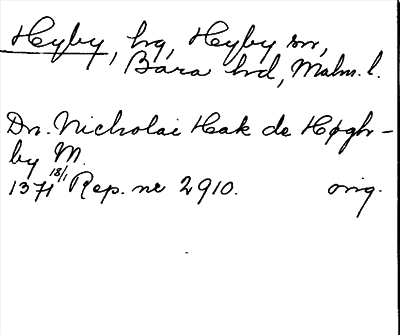 Hyby, hg, Hyby sn,
Bara hd, Malm. l.
Dn. Nicholai Hak de Høgh-
by M.
1371 18/1 Rep. nr 2910. orig.